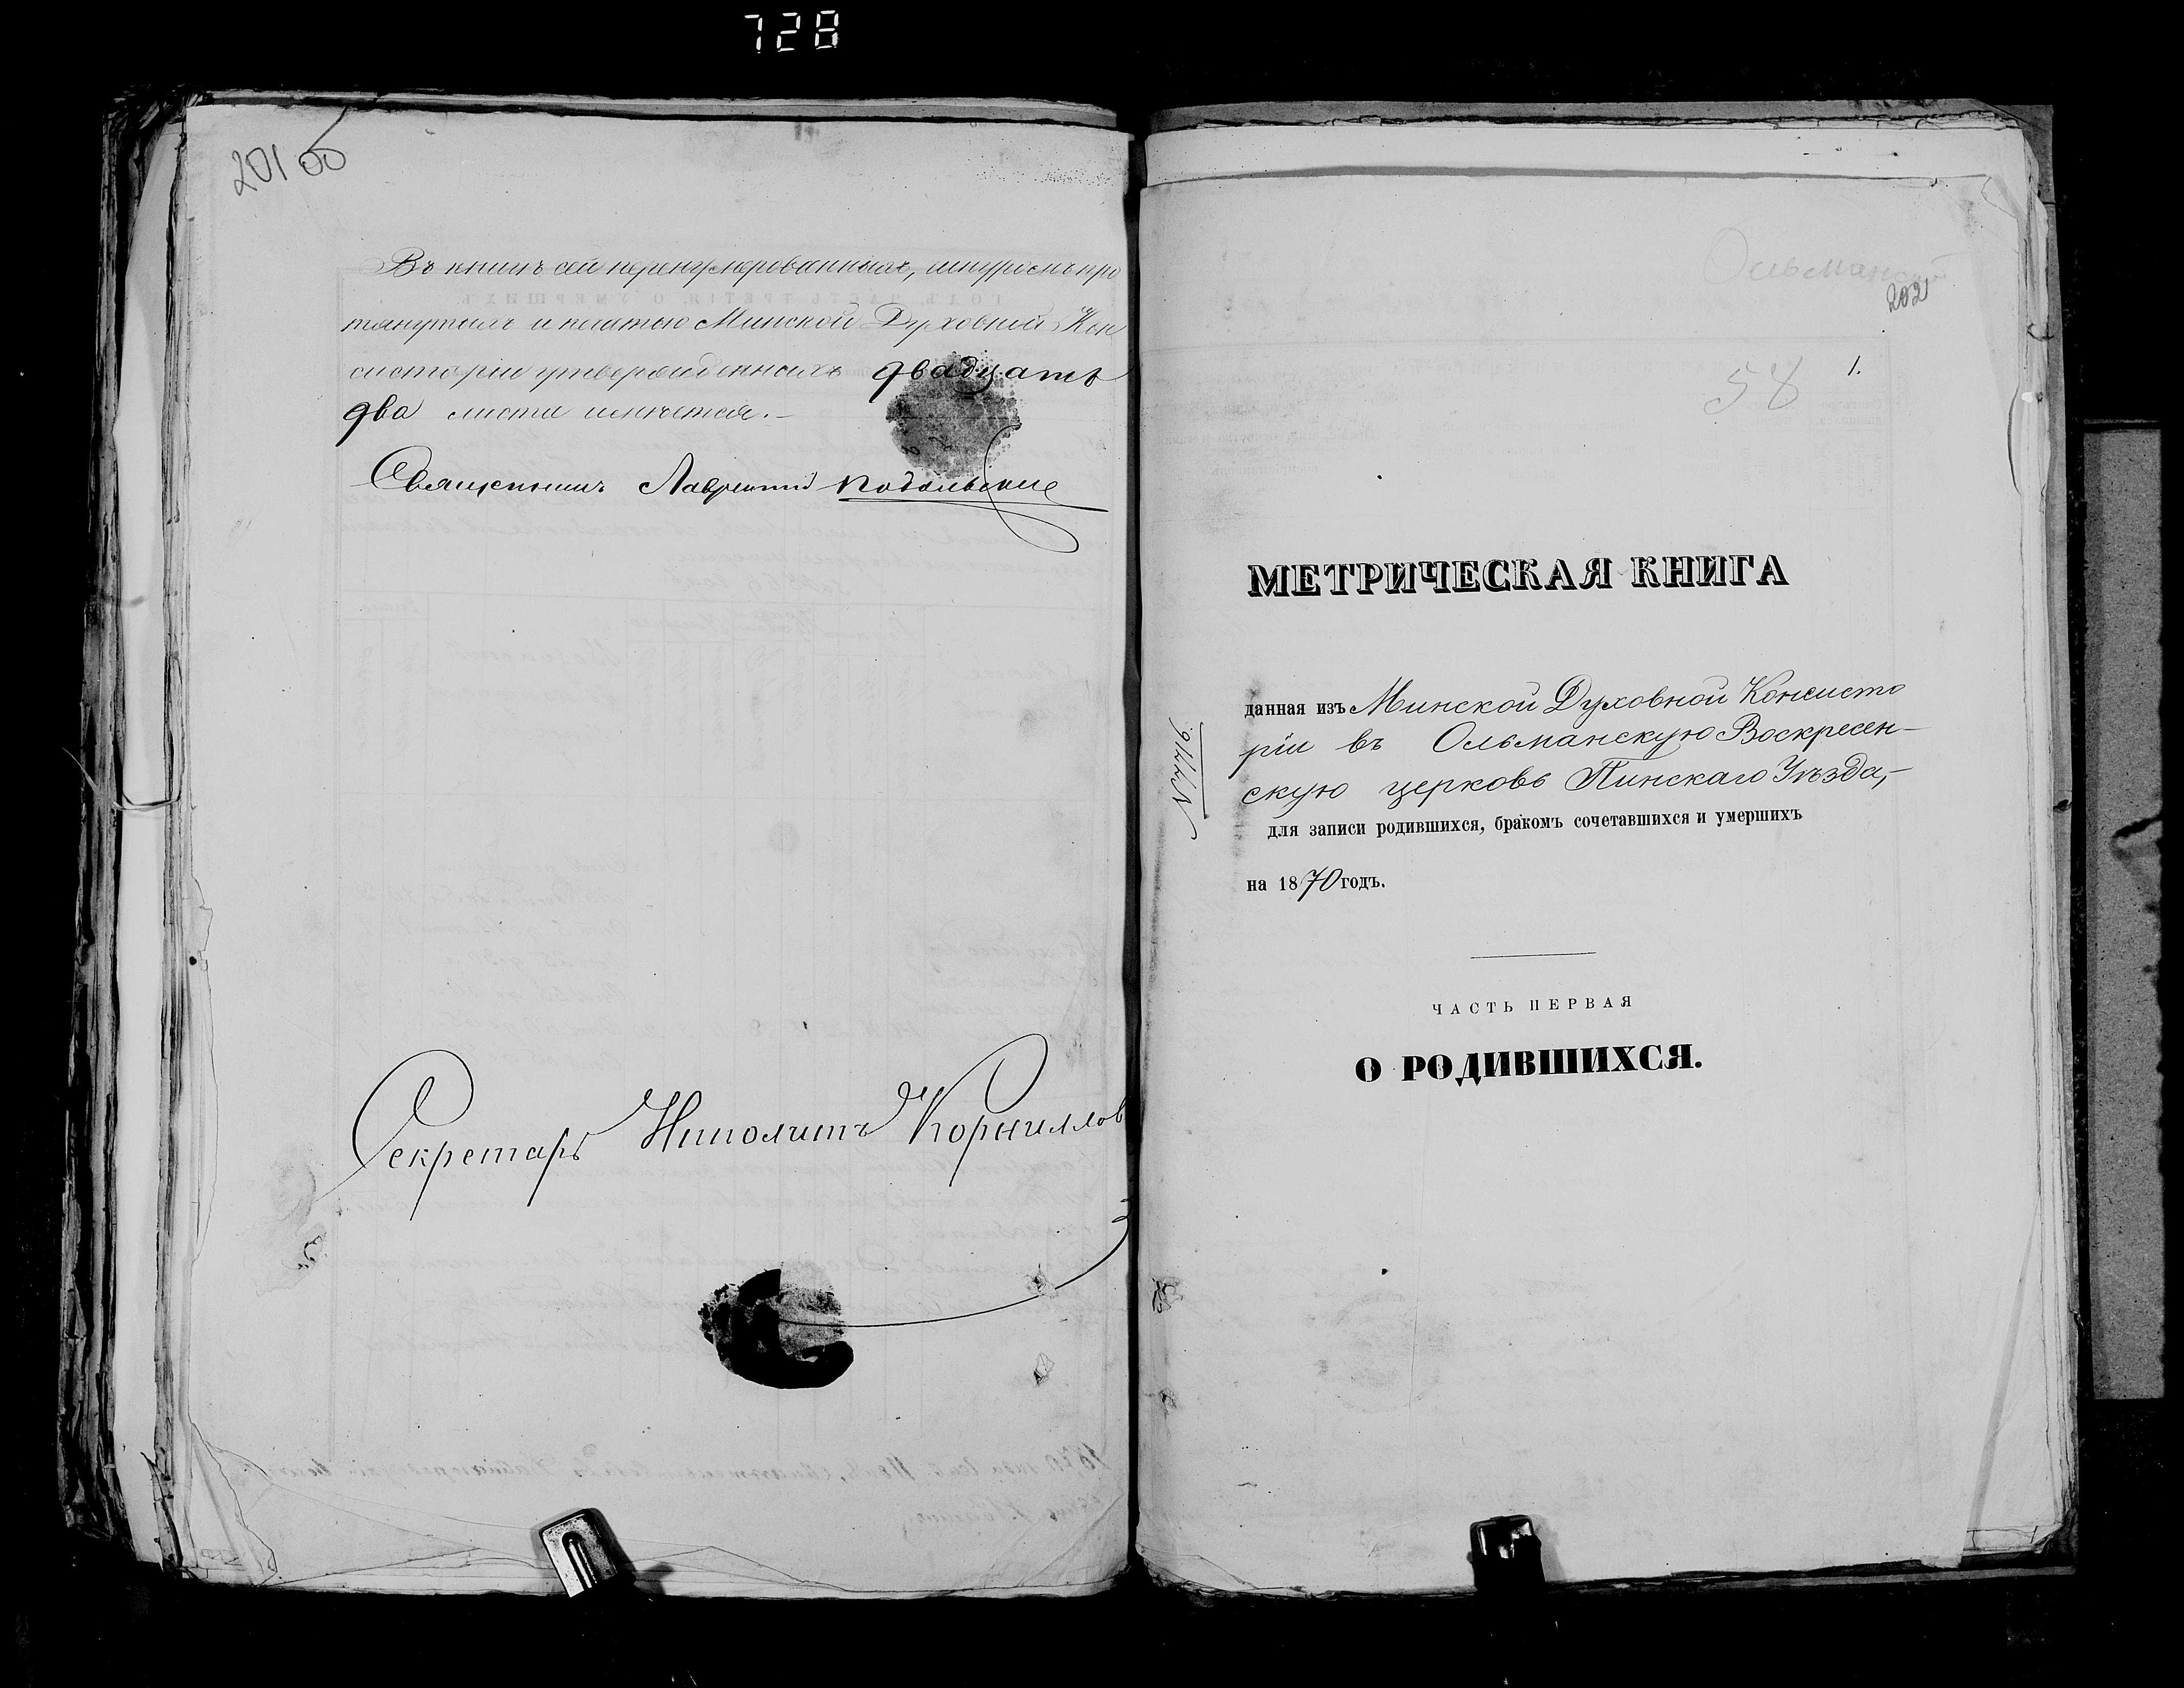 728
201 об
Въ книгѣ сей перенумерованныхъ, шнуромъ про
тянутыхъ и печатью Минской Духовной Кон
систоріи утвержденныхъ двадцать
два листа имѣется.-
Священникъ Лаврентій Подольскій
Секретарь Иполитъ Корнилов
Ольманской
202
1.
58
МЕТРИЧЕСКАЯ КНИГА
данная изъ Минской Духовной Консисто
ріи въ Ольманскую Воскресен-
скую церковь Пинскаго Уѣзда,-
для записи родившихся, бракомъ сочетавшихся и умершихъ
на 1870 годъ.
ЧАСТЬ ПЕРВАЯ
О РОДИВШИХСЯ.